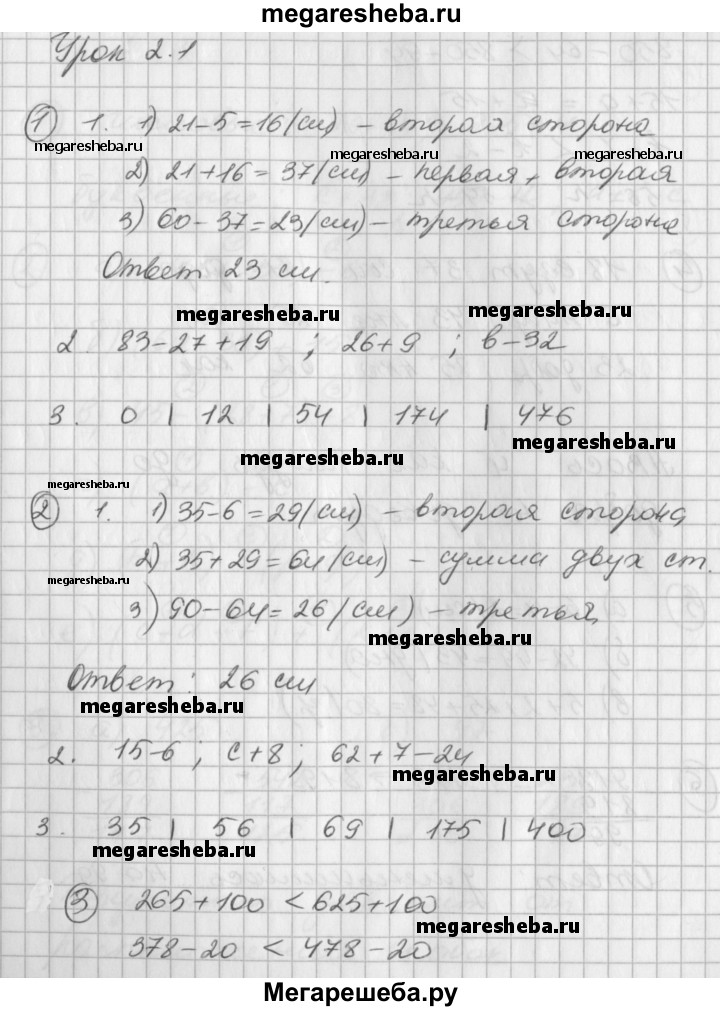 megaresheba.ru
Урок 2.1
① 1. 1) 21-5=16(см) - вторая сторона
megaresheba.ru megaresheba.ru megaresheba.ru
2) 21+16=37(см) - первая, вторая
3) 60-37=23(см) - третья сторона
Ответ 23 см.
megaresheba.ru megaresheba.ru
2 83-27+19 ; 26+9 ; в-32
3. 0 | 12 | 54 | 174 | 476
megaresheba.ru
megaresheba.ru
megaresheba.ru
② 1. 1) 35-6=29(см) - вторая сторона
2) 35+29=64(см) - сумма двух ст.
megaresheba.ru
3) 90-64=26(см) - третья
megaresheba.ru
Ответ: 26 см
megaresheba.ru
2. 15-6 ; с+8 ; 62+7-24
megaresheba.ru
3. 35 | 56 | 69 | 175 | 400
megaresheba.ru
③ 265+100 < 625+100
378-20 < 478-20
megaresheba.ru
Мегарешеба.ру